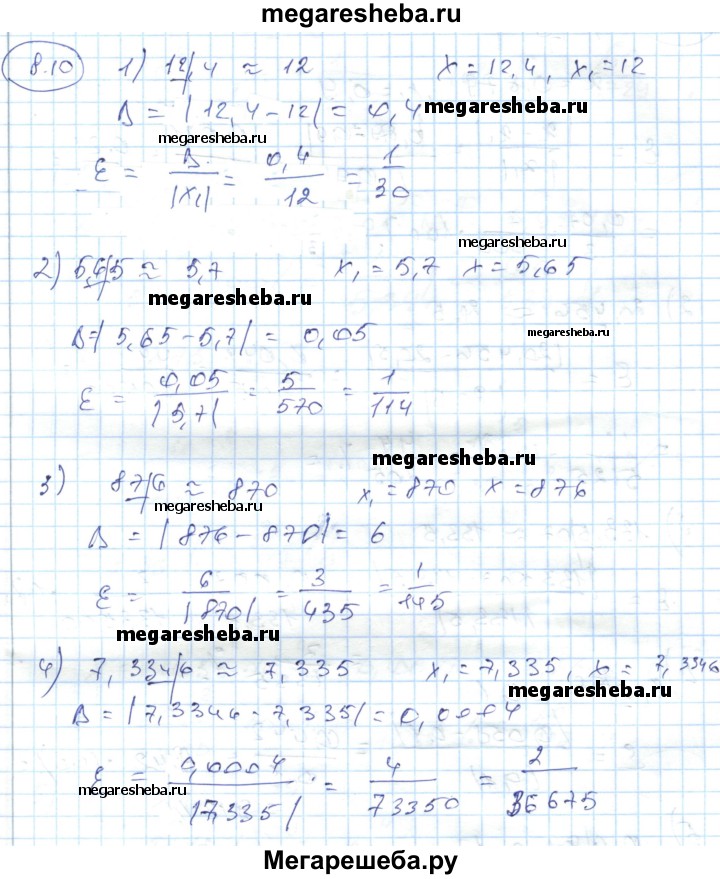 megaresheba.ru
8.10 1) 12,4 ≈ 12 x = 12,4, x₁ = 12
Δ = |12,4 - 12| = 0,4 megaresheba.ru
megaresheba.ru
ε = Δ/|x₁| = 0,4/12 = 1/30
megaresheba.ru
2) 5,65 ≈ 5,7 x₁ = 5,7 x = 5,65
megaresheba.ru
Δ = |5,65 - 5,7| = 0,05 megaresheba.ru
ε = 0,05/|5,7| = 5/570 = 1/114
megaresheba.ru
megaresheba.ru
3) 876 ≈ 870 x₁ = 870 x = 876
megaresheba.ru megaresheba.ru
Δ = |876 - 870| = 6
ε = 6/|870| = 3/435 = 1/145
megaresheba.ru
4) 7,3346 ≈ 7,335 x₁ = 7,335, x = 7,3346
megaresheba.ru
Δ = |7,3346 - 7,335| = 0,0004
ε = 0,0004/|7,335| = 4/73350 = 2/36675
megaresheba.ru megaresheba.ru
Мегарешеба.ру